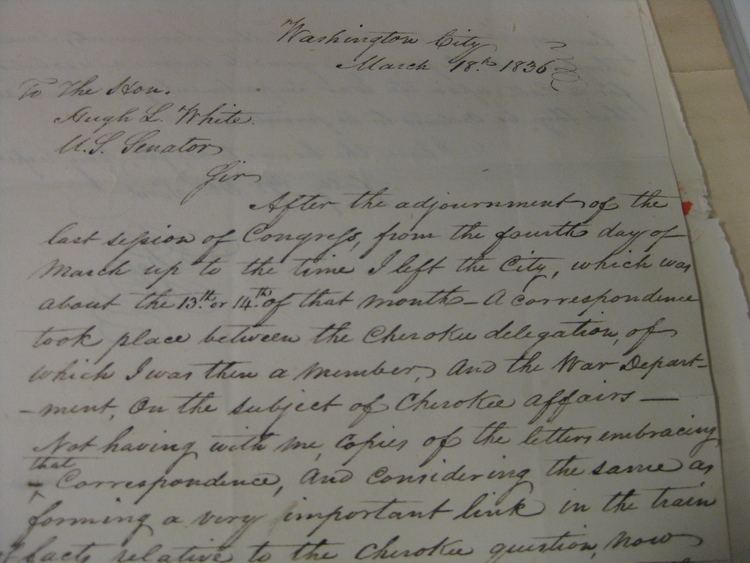 Washington City
March 18th 1836
To The Hon.
Hugh L. White
U.S. Senator
Sir
After the adjournment of the
last session of Congress, from the fourth day of
March up to the time I left the City, which was
about the 13th or 14th of that month – A correspondence
took place between the Cherokee delegation, of
which I was then a member, And the War Depart-
-ment, On the subject of Cherokee affairs —
Not having with me, copies of the letters embracing
that
Correspondence, And considering the same as
forming a very important link in the train
facts relative to the Cherokee question, now